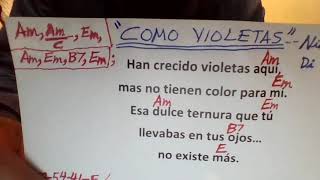 Am, Am/C, Em,
Am, Em, B7, Em,
"COMO VIOLETAS"--
Am
Han crecido violetas aquí,
Em
mas no tienen color para mí.
Am Em
Esa dulce ternura que tú
B7
llevabas en tus ojos...
E
no existe más.